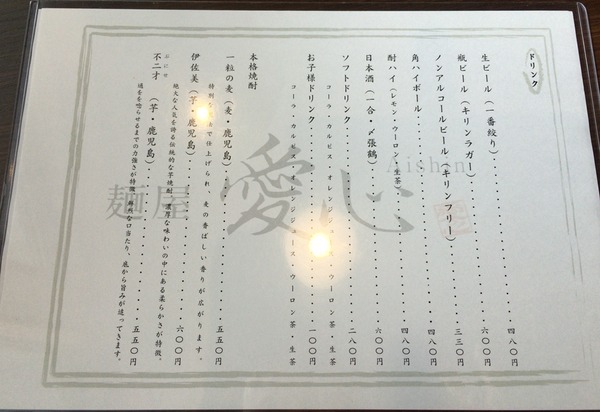 ドリンク
生ビール(一番絞り)・・・・・・・・・・四八〇円
瓶ビール(キリンラガー)・・・・・・・・・・六〇〇円
ノンアルコールビール(キリンフリー)・・・・・・・・・・三三〇円
角ハイボール・・・・・・・・・・四八〇円
酎ハイ(レモン・ウーロン・生茶)・・・・・・・・・・四八〇円
日本酒(一合・〆張鶴)・・・・・・・・・・六〇〇円
ソフトドリンク・・・・・・・・・・二八〇円
コーラ・カルピス・オレンジジュース・ウーロン茶・生茶
お子様ドリンク・・・・・・・・・・一〇〇円
コーラ・カルピス・オレンジジュース・ウーロン茶・生茶
本格焼酎
一粒の麦(麦・鹿児島)・・・・・・・・・・五五〇円
特別な で仕上げられ、麦の香ばしい香りが広がります。
伊佐美(芋・鹿児島)・・・・・・・・・・六〇〇円
絶大な人気を誇る伝統的な芋焼酎 濃厚な味わいの中にある柔らかさが特徴。
おにせ
不二才(芋・鹿児島)・・・・・・・・・・五五〇円
通をを唸らせるまでの力強さが特徴 鮮烈な口当たり、底から旨みが追ってきます。
麺屋 愛心
Aishin